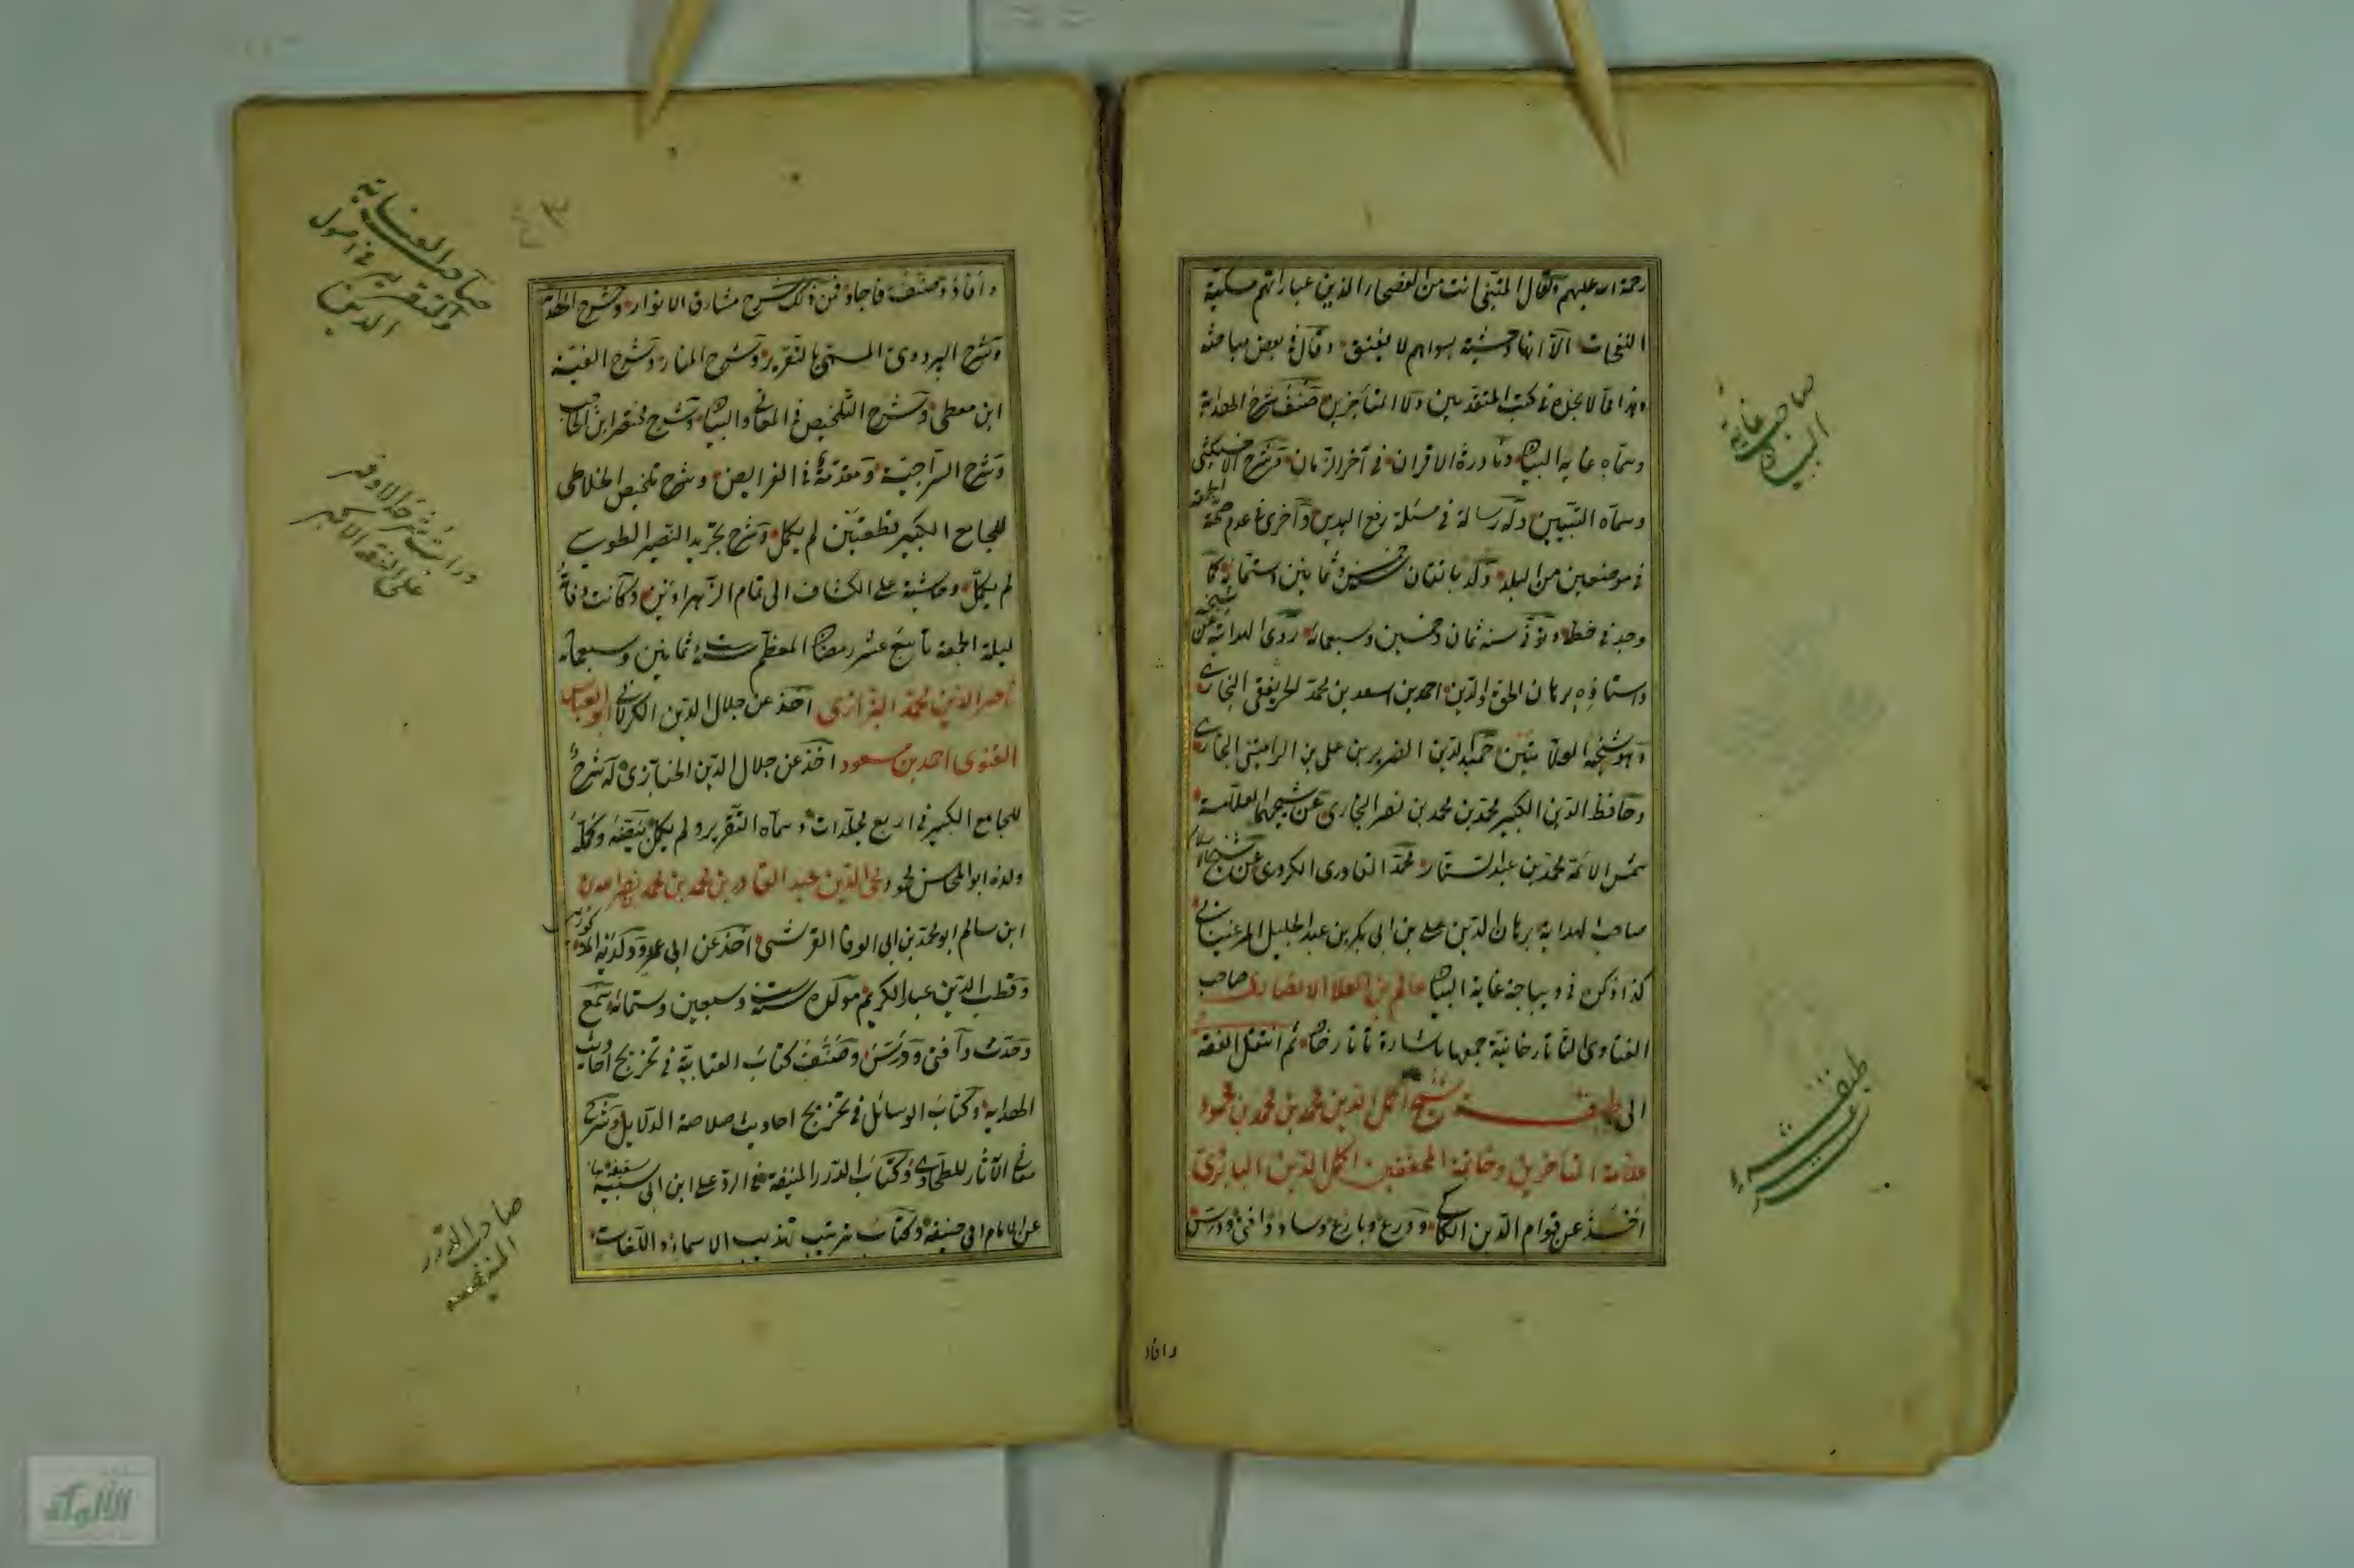 رحمة الله عليهم وكقال المتنبي انت من الفصحاء الذين عباراتهم مسكية
النفحات الا انها وحشية بسواهم لا يعبق وقال في بعض مباحثه
وهذا مما لا تجده في كتب المتقدمين ولا المتأخرين صنف شرح الهداية
وسماه غاية البيان ونادرة الاقران في آخر الزمان وشرح الاخسيكثي
وسماه التبيين وله رسالة في مسئلة رفع اليدين واخرى في عدم صحة الجمعة
في موضعين من البلد ولد باتقان سنة خمس وثمانين وستمائة كما
وجد في خطه وتوفى سنة ثمان وخمسين وسبعمائة روى الهداية عن شيخه
واستاذه برهان الحق والدين احمد بن اسعد بن محمد الخريفغني البخاري
وهو شيخه العلامتين حميد الدين الضرير بن علي بن الرامشي البخاري
وحافظ الدين الكبير محمد بن محمد بن نصر البخاري عن شيخهما العلامة
شمس الائمة محمد بن عبد الستار محمد العادري الكردري عن شيخ الاسلام
صاحب الهداية برهان الدين علي بن ابي بكر بن عبد الجليل المرغيناني
كذا ذكره في ديباجة غاية البيان عالم بن العلا الانصاري صاحب
الفتاوى التاتارخانية جمعها باشارة تاتارخان ثم انتقل الفقه
الى طبقة شيخ اكمل الدين محمد بن محمد بن محمود
علامة المتأخرين وخاتمة المحققين اكمل الدين البابرتي
اخذ عن قوام الدين الكاكي وورع وبارع وساد وافتى ودرس
وافاد
صاحب غاية
البيان
طبقه
وافاد وصنف فاجاد فمن ذلك شرح مشارق الانوار وشرح الهداية
وشرح البزدوي المسمى بالتقرير وشرح المنار وشرح الفية
ابن معطي وشرح التلخيص في المعاني والبيان وشرح مختصر ابن الحاجب
وشرح السراجية ومقدمة في الفرايض وشرح تلخيص الخلاطي
للجامع الكبير قطعتين لم يكمل وشرح تجريد النصير الطوسي
لم يكمل وحاشية على الكشاف الى تمام الزهراوين وكانت وفاته
ليلة الجمعة تاسع عشر رمضان المعظم سنة ست وثمانين وسبعمائة
ناصر الدين محمد البزازي اخذ عن جلال الدين الكرلاني ابو العباس
القنوي احمد بن مسعود اخذ عن جلال الدين الخبازي له شرح
للجامع الكبير في اربع مجلدات وسماه التقرير ولم يكمل بتبيضه وكمله
ولده ابو المحاسن محمود محي الدين عبد القادر بن محمد بن محمد بن نصر الله
ابن سالم ابو محمد بن ابي الوفا القرشي اخذ عن ابي عمرو ولديه المذكورين
وقطب الدين عبد الكريم مولده سنة ست وسبعين وستمائة سمع
وحدث وافتى ودرس وصنف كتاب العناية في تخريج احاديث
الهداية وكتاب الوسائل في تخريج احاديث خلاصة الدلايل وشرح
معاني الآثار للطحاوي وكتاب الدرر المنيفة في الرد على ابن ابي شيبة
عن الامام ابي حنيفة وكتاب ترتيب تهذيب الاسماء واللغات
صاحب العناية
والتقرير في اصول
الدين
على الفقه الاكبر
صاحب الدرر
المنيفه
الألوكة